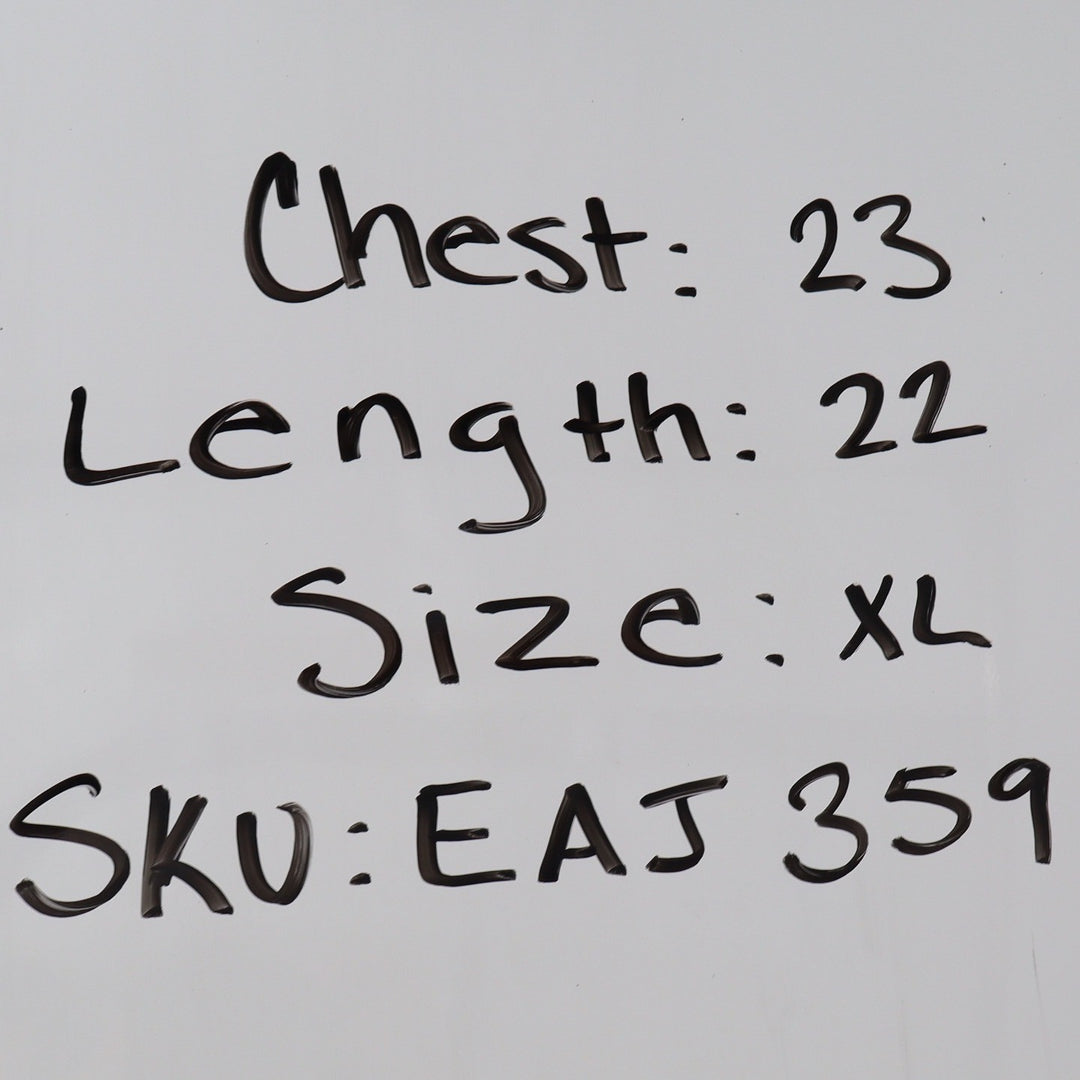 Chest: 23
Length: 22
Size: XL
SKU: EAJ 359